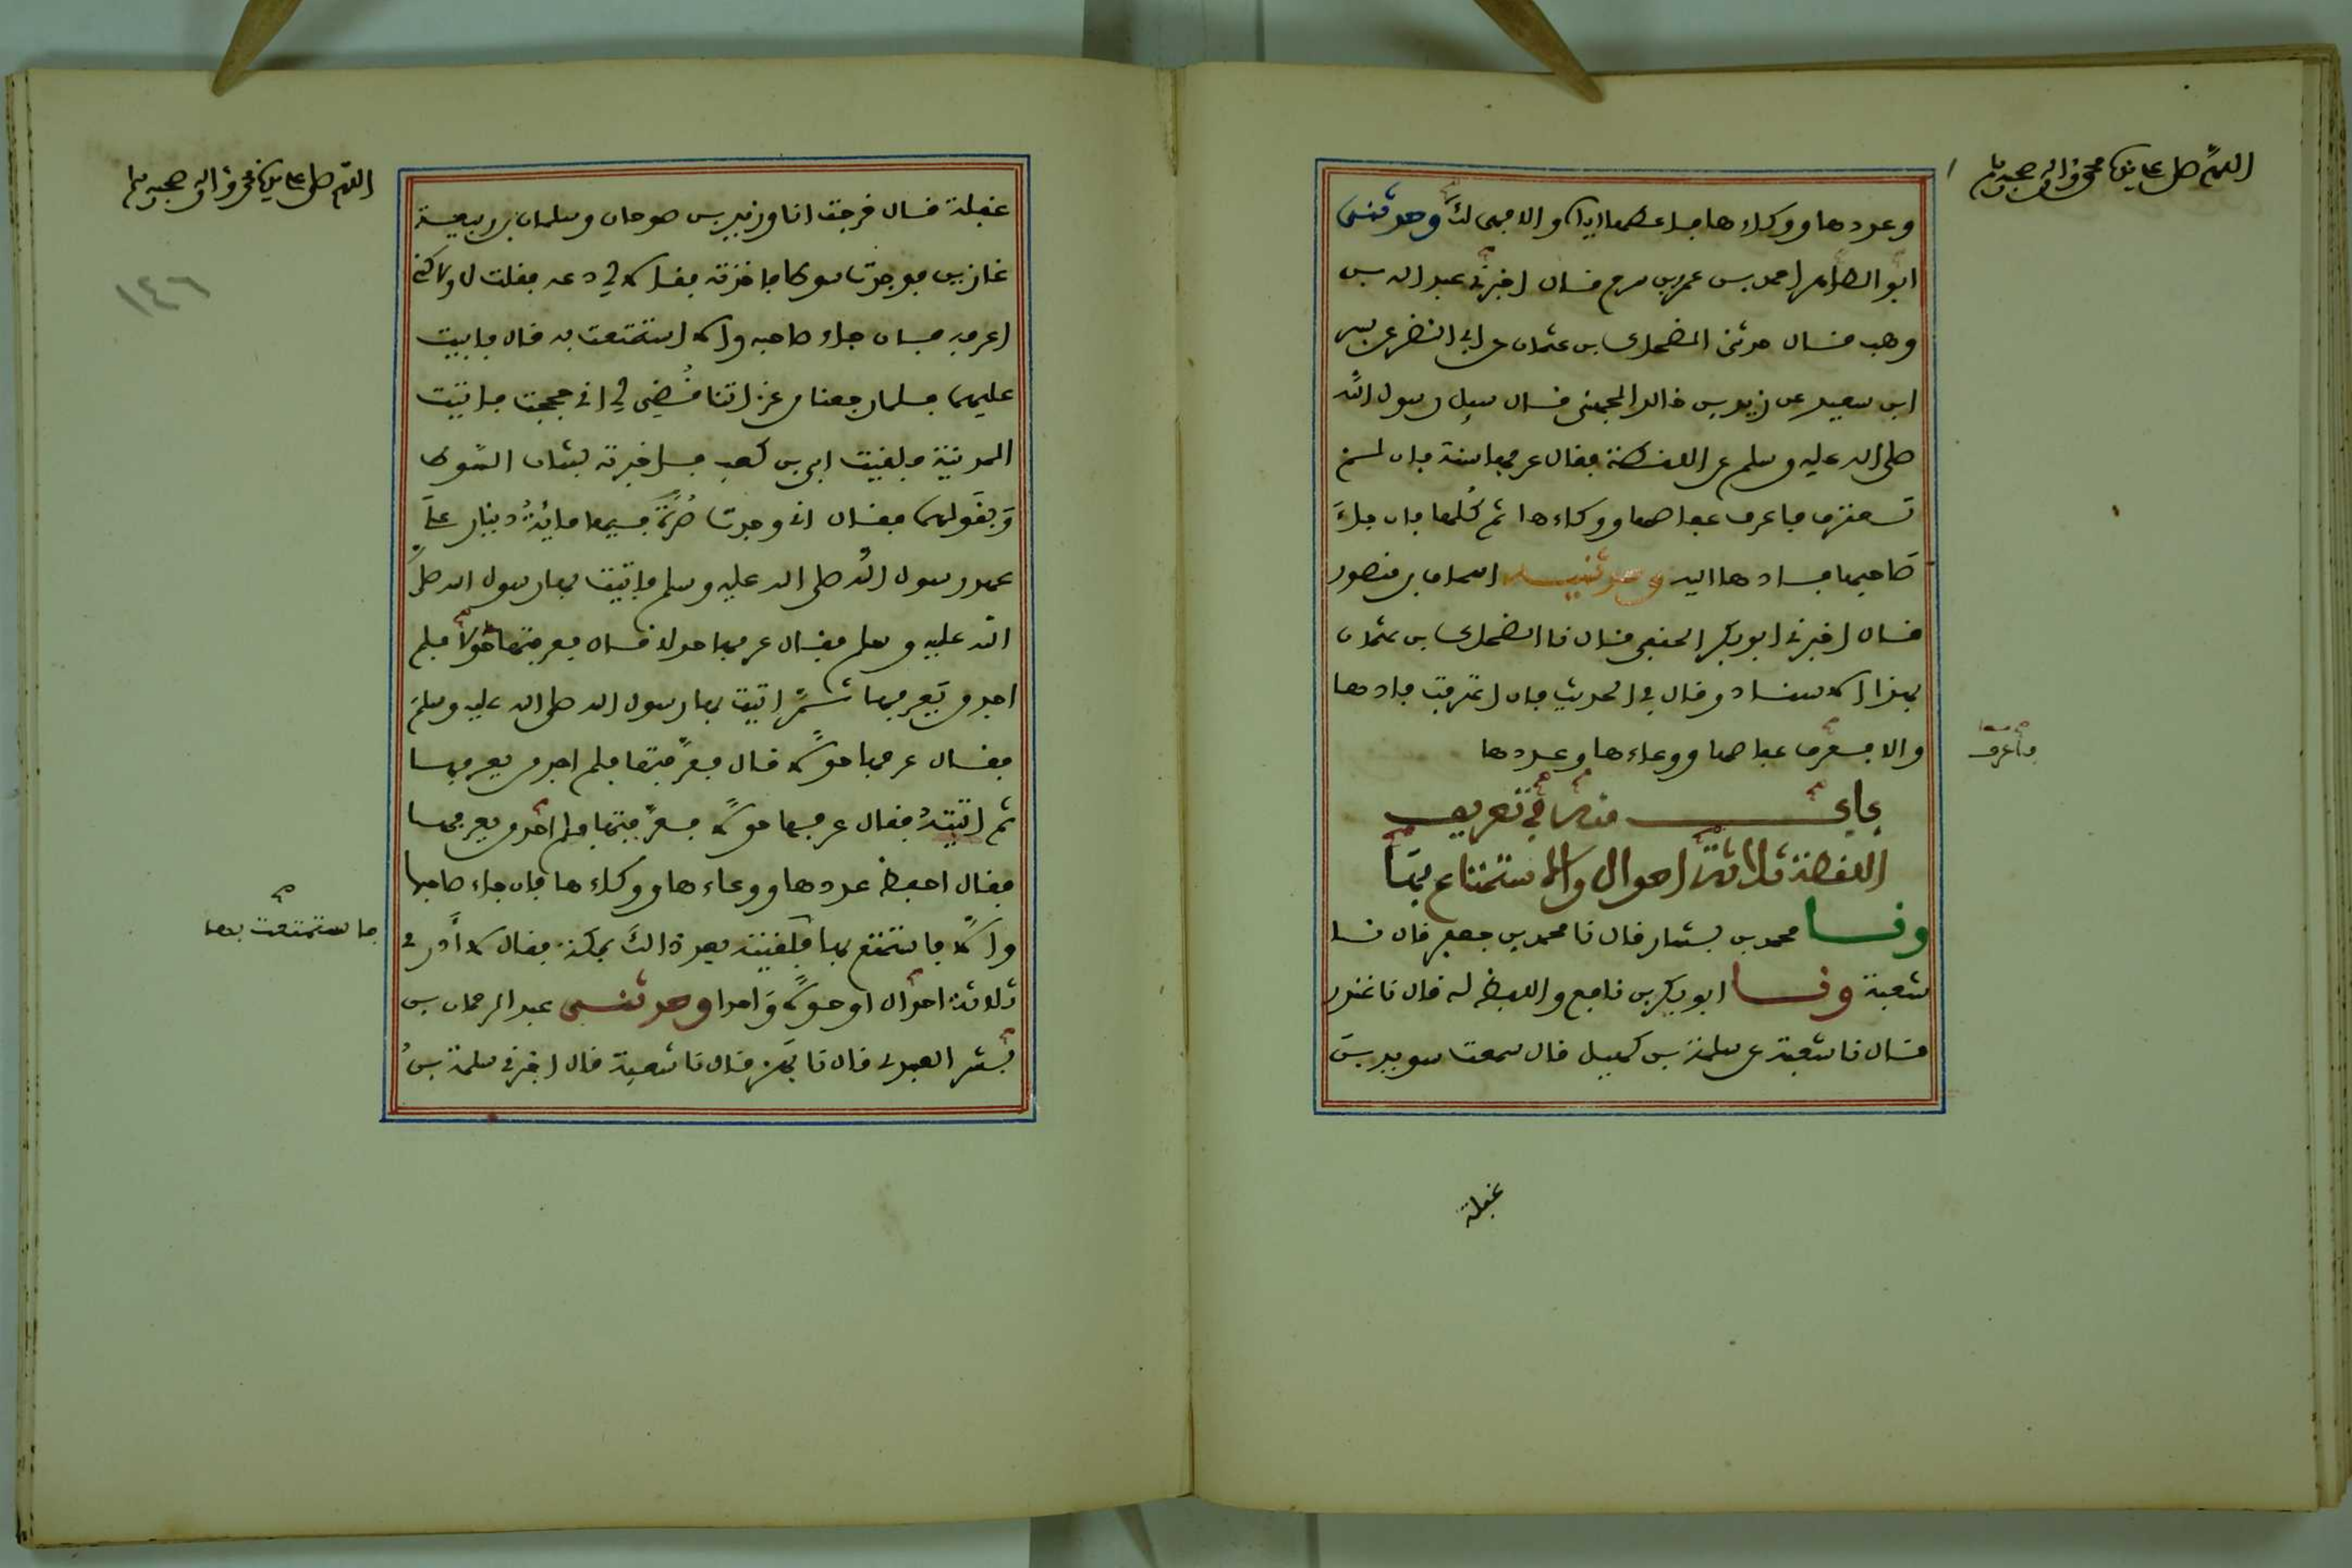 اللهم صل على سيدنا محمد وآله وصحبه وسلم
وعددها ووكاءها فاعطها اياه والا فهي لك وحدثني
ابو الطاهر احمد بن عمرو بن سرح قال اخبرني عبد الله بن
وهب قال حدثني الضحاك بن عثمان عن ابي النضر عن بسر
ابن سعيد عن زيد بن خالد الجهني قال سيل رسول الله
صلى الله عليه وسلم عن اللقطة فقال عرفها سنة فان لم
تعترف فاعرف عفاصها ووكاءها ثم كلها فان جاء
صاحبها فادها اليه وحدثنيه اسحاق بن منصور
قال اخبرني ابو بكر الحنفي قال نا الضحاك بن عثمان
بهذا الاسناد وقال في الحديث فان اعترفت فادها
والا فاعرف عفاصها ووعاءها وعددها
فاعرف
باب منه في تعريف
اللقطة ثلاثة احوال والاستمتاع بها
ونا محمد بن بشار قال نا محمد بن جعفر قال نا
شعبة ونا ابو بكر بن نافع واللفظ له قال نا غندر
قال نا شعبة عن سلمة بن كهيل قال سمعت سويد بن
غفلة
اللهم صل على سيدنا محمد وآله وصحبه وسلم
١٤٦
غفلة قال خرجت انا وزيد بن صوحان وسلمان بن ربيعة
غازين فوجدت سوطا فاخذته فقالا لي دعه فقلت لا ولاكني
اعرفه فان جاء صاحبه والا استمتعت به قال فابيت
عليهما فلما رجعنا من غزاتنا قضي لي اني حججت فاتيت
المدينة فلقيت ابي بن كعب فاخبرته بشان السوط
وبقولهما فقال اني وجدت صرة فيها مائة دينار على
عهد رسول الله صلى الله عليه وسلم فاتيت بها رسول الله صلى
الله عليه وسلم فقال عرفها حولا قال فعرفتها حولا فلم
اجد من يعرفها ثم اتيت بها رسول الله صلى الله عليه وسلم
فقال عرفها حولا قال فعرفتها فلم اجد من يعرفها
ثم اتيته فقال عرفها حولا فعرفتها فلم اجد من يعرفها
فقال احفظ عددها ووعاءها ووكاءها فان جاء صاحبها
والا فاستمتع بها فلقيته بعد ذالك بمكة فقال لا ادري
فاستمتعت بها
ثلاثة احوال او حولا واحدا وحدثني عبد الرحمان بن
بشر العبدي قال نا بهز قال نا شعبة قال اخبرني سلمة بن